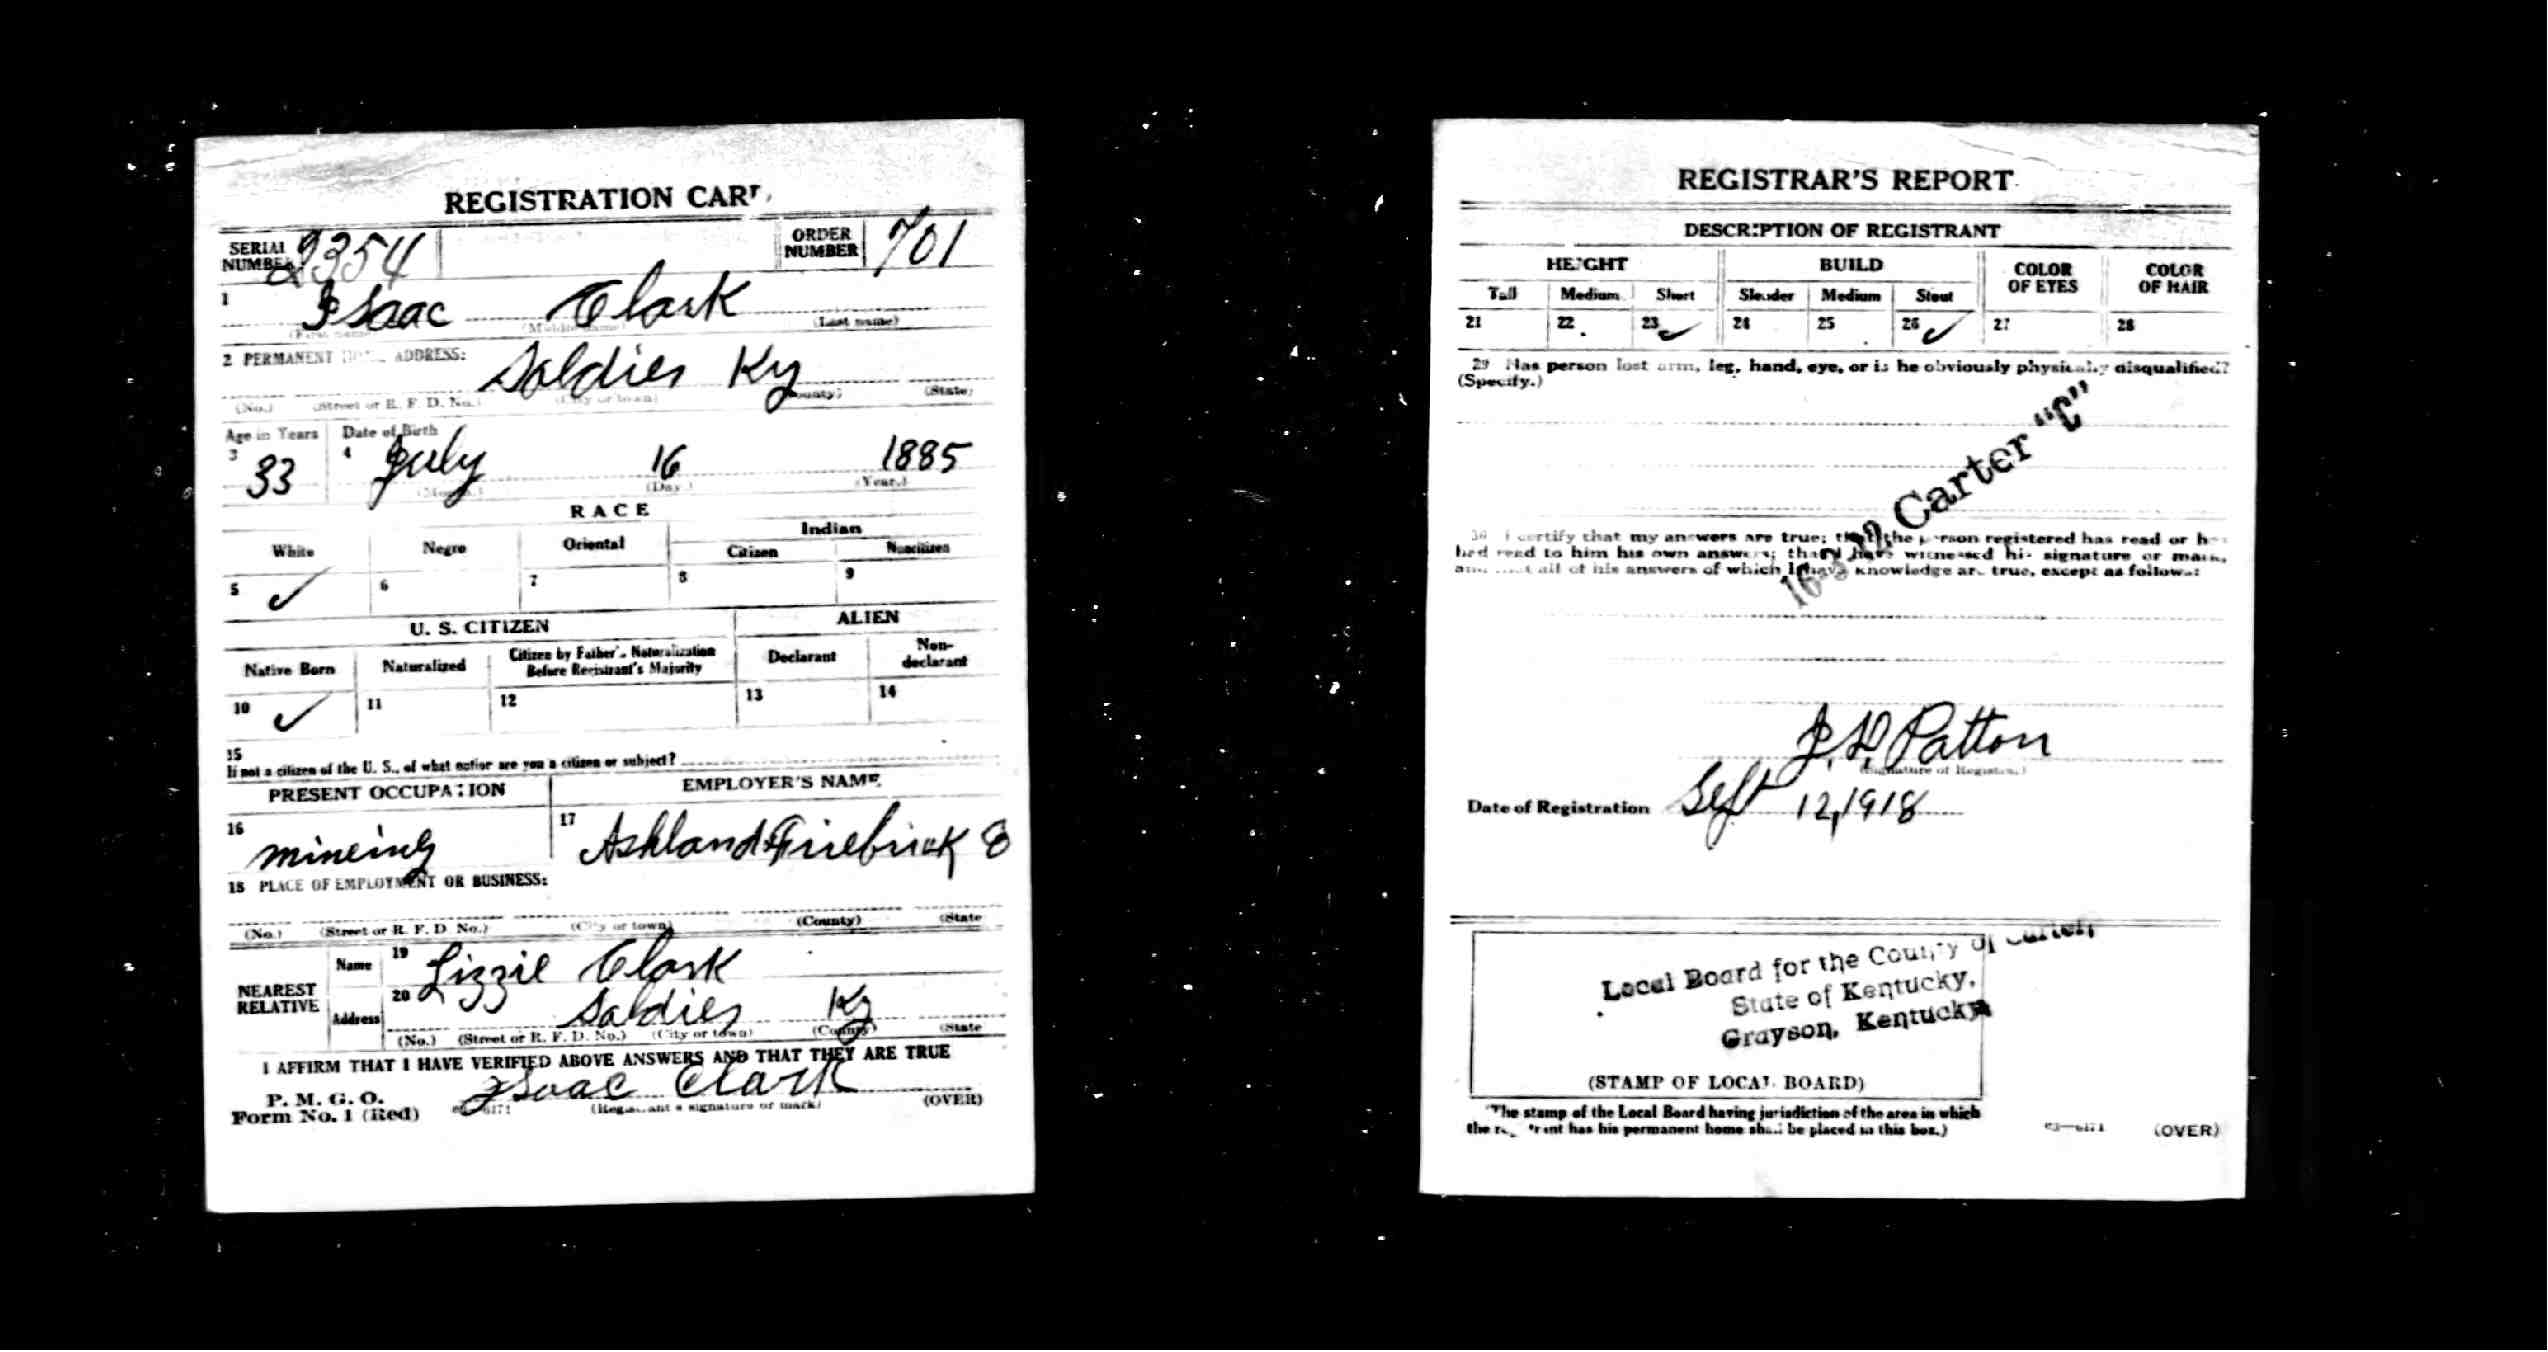 REGISTRATION CARD
SERIAL NUMBER 2354
ORDER NUMBER 701
1 Isaac Clark
(First name) (Middle name) (Last name)
2 PERMANENT HOME ADDRESS:
Soldier Ky
(No.) (Street or R. F. D. No.) (City or town) (County) (State)
Age in Years Date of Birth
3 33 4 July 16 1885
(Month.) (Day.) (Year.)
RACE
White Negro Oriental Indian
Citizen Noncitizen
5 ✓ 6 7 8 9
U. S. CITIZEN ALIEN
Native Born Naturalized Citizen by Father's Naturalization Before Registrant's Majority Declarant Non-declarant
10 ✓ 11 12 13 14
15
If not a citizen of the U. S., of what nation are you a citizen or subject?
PRESENT OCCUPATION EMPLOYER'S NAME
16 mineing 17 Ashland Firebrick
18 PLACE OF EMPLOYMENT OR BUSINESS:
(No.) (Street or R. F. D. No.) (City or town) (County) (State
NEAREST RELATIVE
Name 19 Lizzie Clark
Address 20 Soldier Ky
(No.) (Street or R. F. D. No.) (City or town) (County) (State
I AFFIRM THAT I HAVE VERIFIED ABOVE ANSWERS AND THAT THEY ARE TRUE
P. M. G. O.
Form No. 1 (Red)
Isaac Clark
(Registrant's signature or mark) (OVER)
REGISTRAR'S REPORT
DESCRIPTION OF REGISTRANT
HEIGHT BUILD COLOR OF EYES COLOR OF HAIR
Tall Medium Short Slender Medium Stout
21 22 23 ✓ 24 25 26 ✓ 27 28
29 Has person lost arm, leg, hand, eye, or is he obviously physically disqualified?
(Specify.)
Carter "C"
30 I certify that my answers are true; that the person registered has read or has
had read to him his own answers; that I have witnessed his signature or mark,
and that all of his answers of which I have knowledge are true, except as follows:
Patton
(Signature of Registrar)
Date of Registration Sept 12, 1918
Local Board for the County of Carter,
State of Kentucky,
Grayson, Kentucky
(STAMP OF LOCAL BOARD)
(The stamp of the Local Board having jurisdiction of the area in which
the registrant has his permanent home shall be placed in this box.)
03—6171 (OVER)